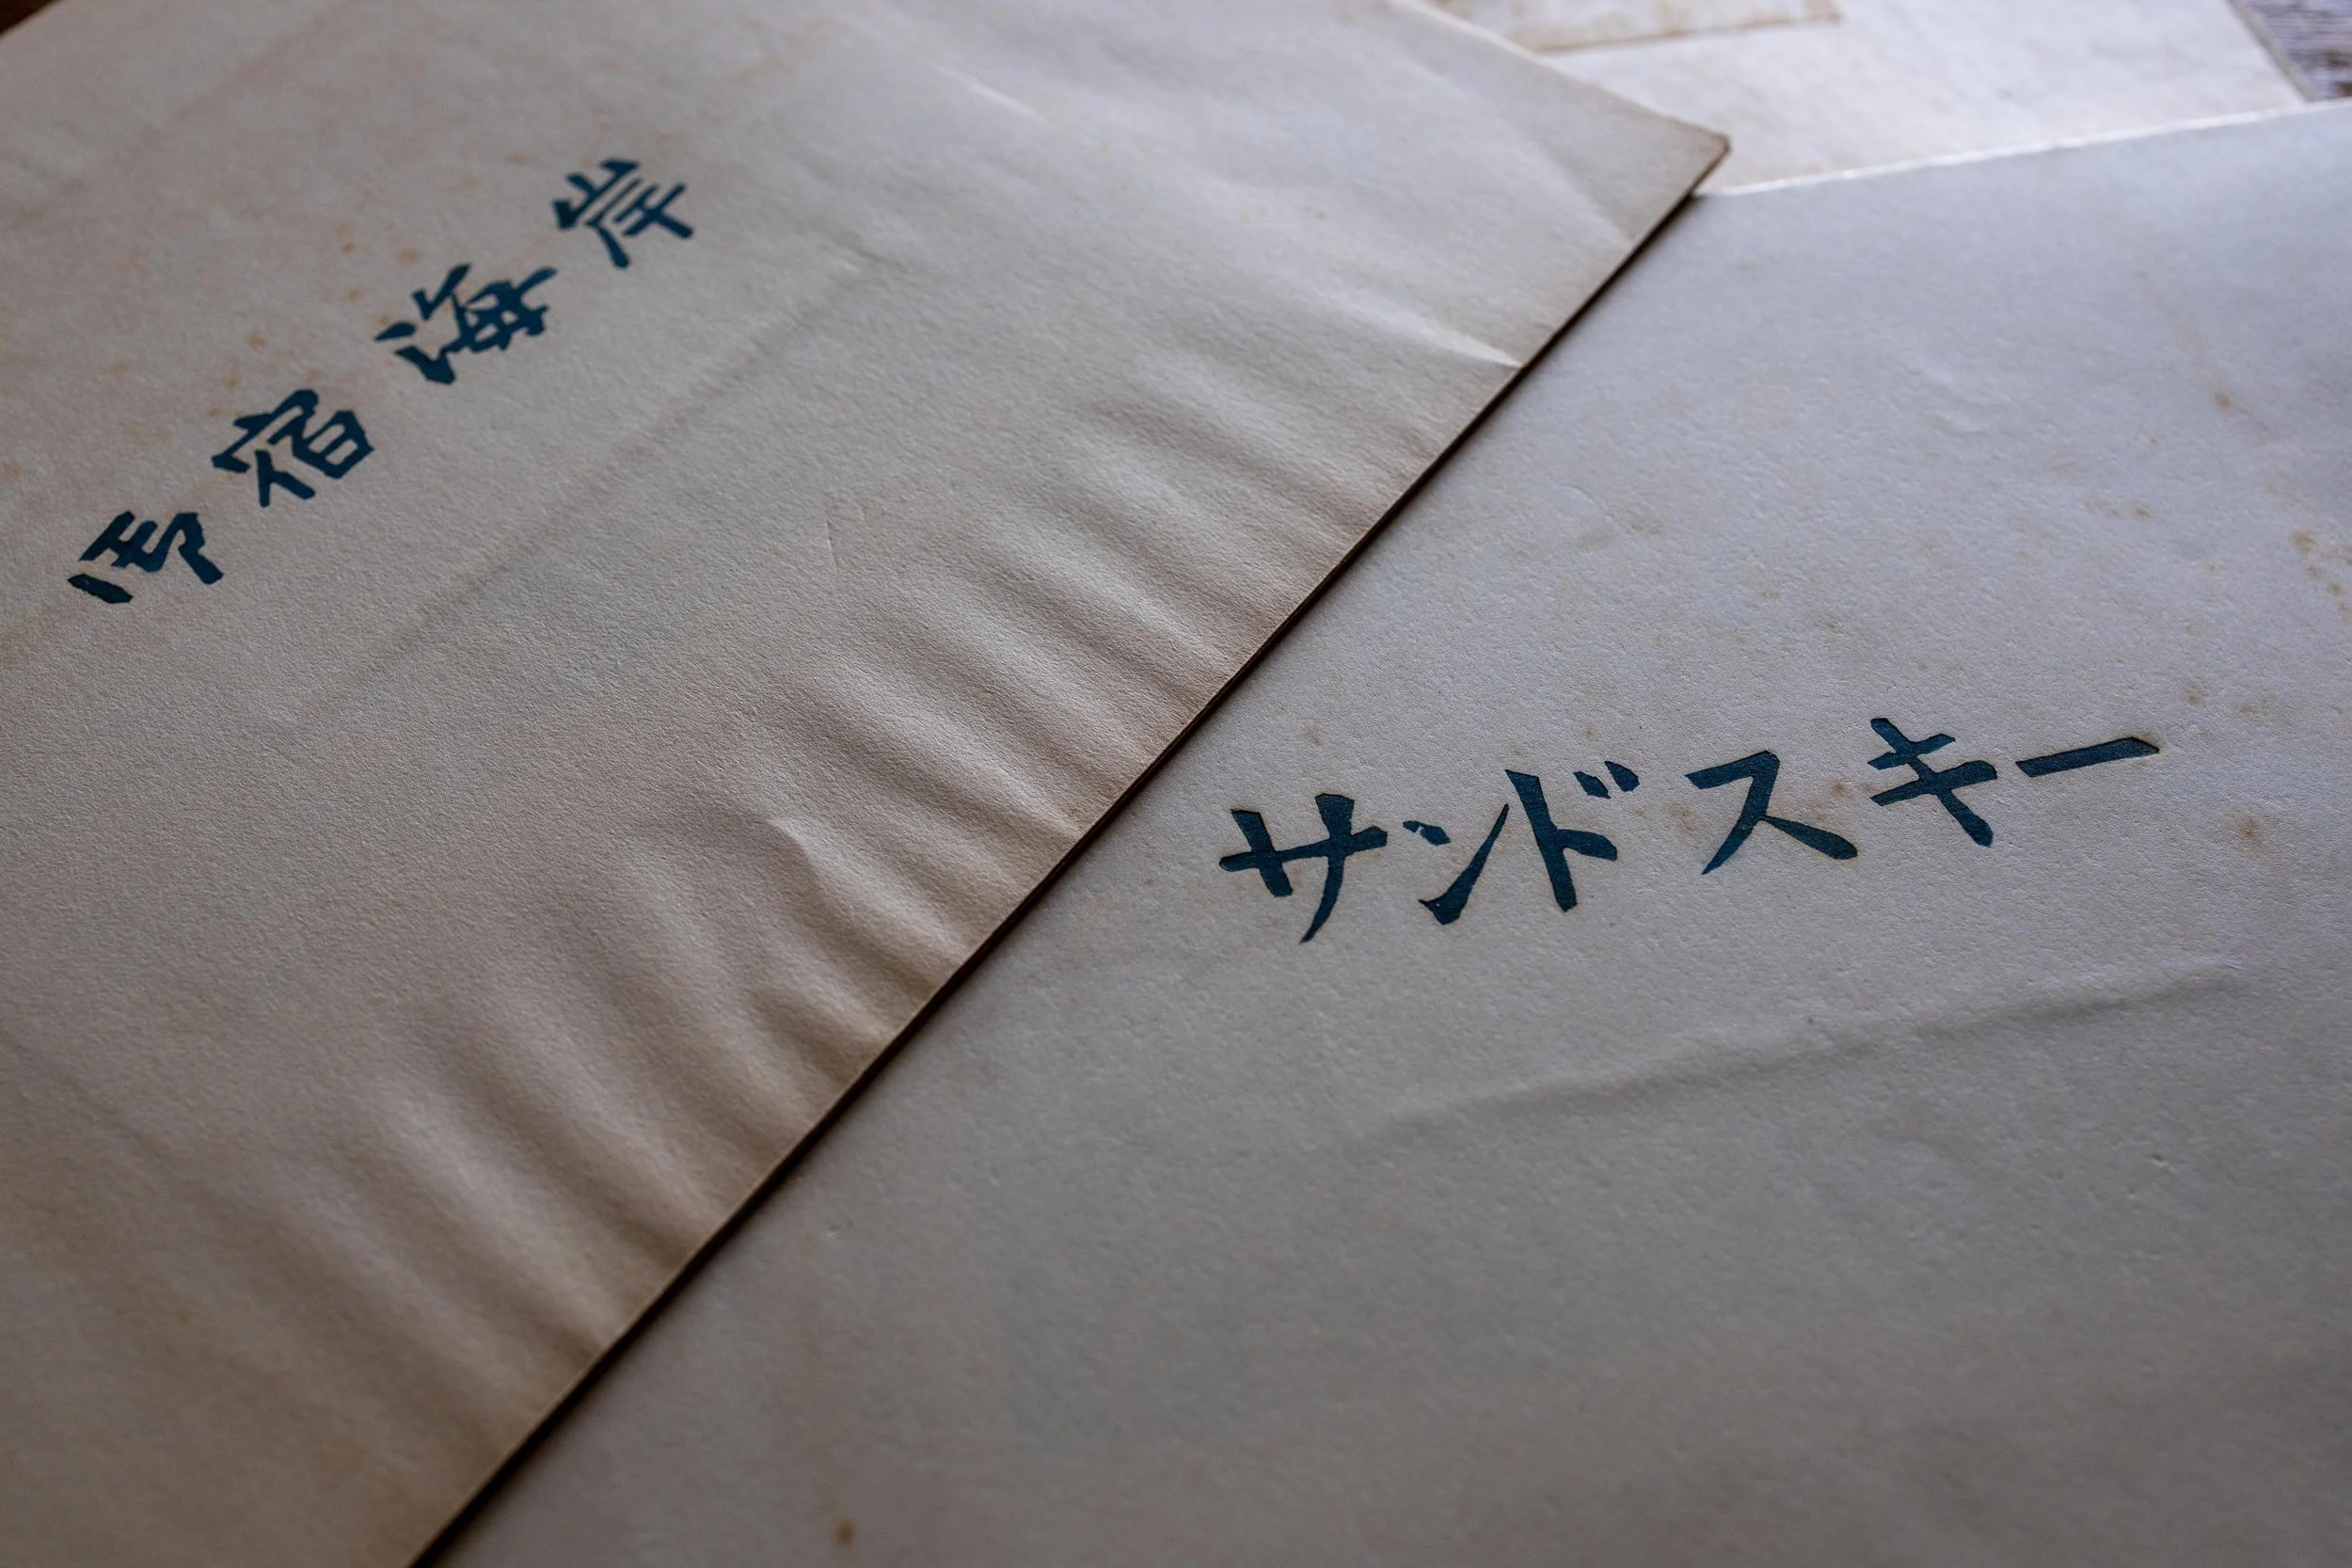 御宿海岸
サンドスキー